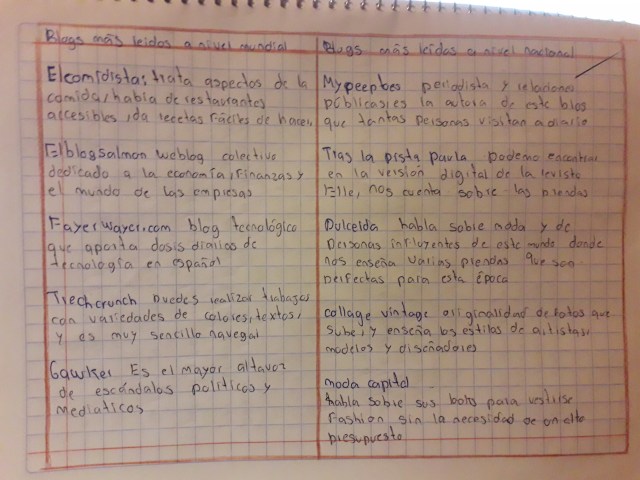 Blogs más leidos a nivel mundial
El comidista: trata aspectos de la
comida, habla de restaurantes
accesibles, da recetas fáciles de hacer,
Elblogsalmon weblog colectivo
dedicado a la economía, finanzas y
el mundo de las empresas
Fayerwayer.com blog tecnológico
que aporta dosis diarios de
tecnología en español
Trechcrunch puedes realizar trabajos
con variedades de colores, textos,
y es muy sencillo navegar
Gawker Es el mayor altavoz
de escándalos políticos y
mediaticos
Blogs más leidas a nivel nacional
Mypeeptoes periodista y relaciones
públicas, es la autora de este blog
que tantas personas visitan a diario
Tras la pista paula podemo encontrar
en la versión digital de la revista
Elle, nos cuenta sobre las prendas
Dulceida habla sobre moda y de
personas influyentes de este mundo donde
nos enseña varias prendas que son
perfectas para esta época
collage vintage originalidad de fotos que
sube, y enseña los estilos de artistas,
modelos y diseñadores
moda capital
habla sobre sus para vestirse
fashion sin la necesidad de un alto
presupuesto